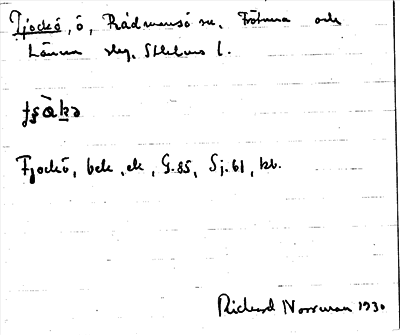 Tjockö, ö, Rådmansö sn, Frötuna och
Länna skg, Sthlms l.
Tjockö, bek, ek, G.85, Sj.61, kb.
Richard Norrman 1930